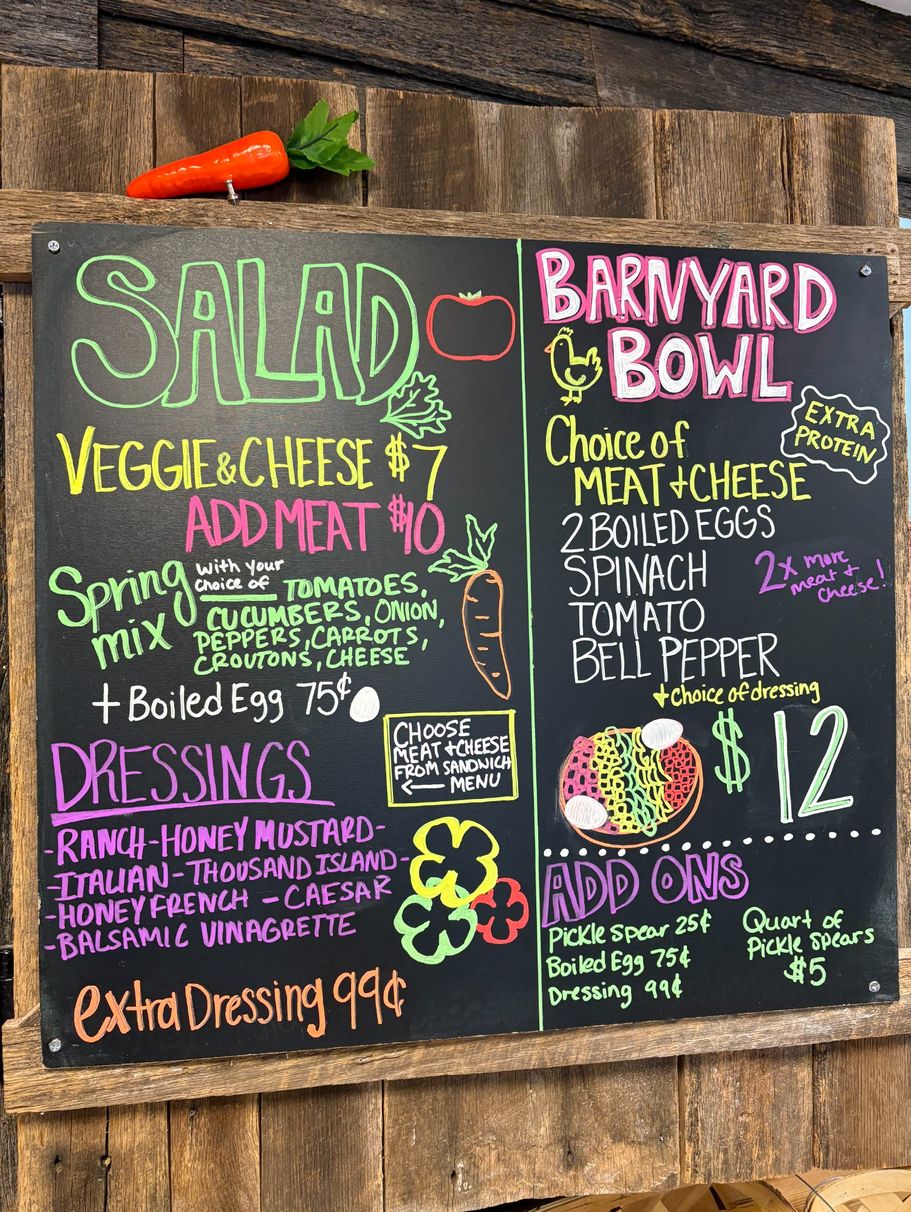 SALAD
VEGGIE & CHEESE $7
ADD MEAT $10
Spring mix
with your
choice of
TOMATOES,
CUCUMBERS, ONION,
PEPPERS, CARROTS,
CROUTONS, CHEESE
+ Boiled Egg 75¢
CHOOSE
MEAT + CHEESE
FROM SANDWICH
← MENU
DRESSINGS
-RANCH-HONEY MUSTARD-
-ITALIAN-THOUSAND ISLAND-
-HONEY FRENCH - CAESAR
-BALSAMIC VINAGRETTE
extra Dressing 99¢
BARNYARD
BOWL
EXTRA
PROTEIN
Choice of
MEAT + CHEESE
2 BOILED EGGS
SPINACH
TOMATO
BELL PEPPER
2x more
meat +
cheese!
+ choice of dressing
$12
ADD ONS
Pickle Spear 25¢
Boiled Egg 75¢
Dressing 99¢
Quart of
Pickle Spears
$5